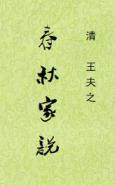 清 王夫之
春秋家説